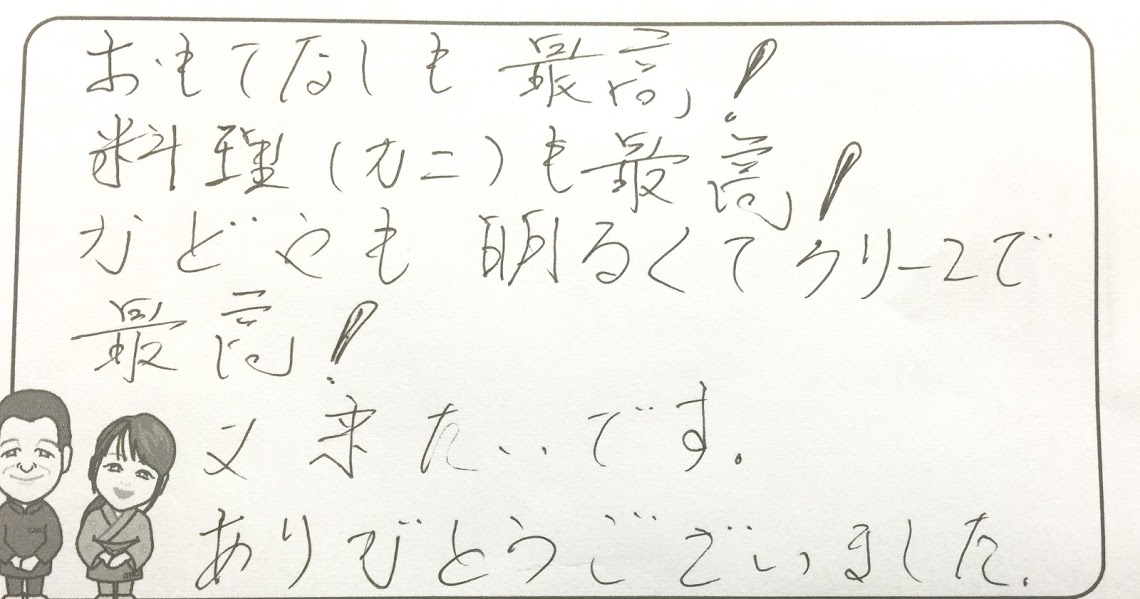 おもてなしも最高!
料理(カニ)も最高!
かどやも明るくてクリーンで
最高!
又来たいです.
ありがとうございました.